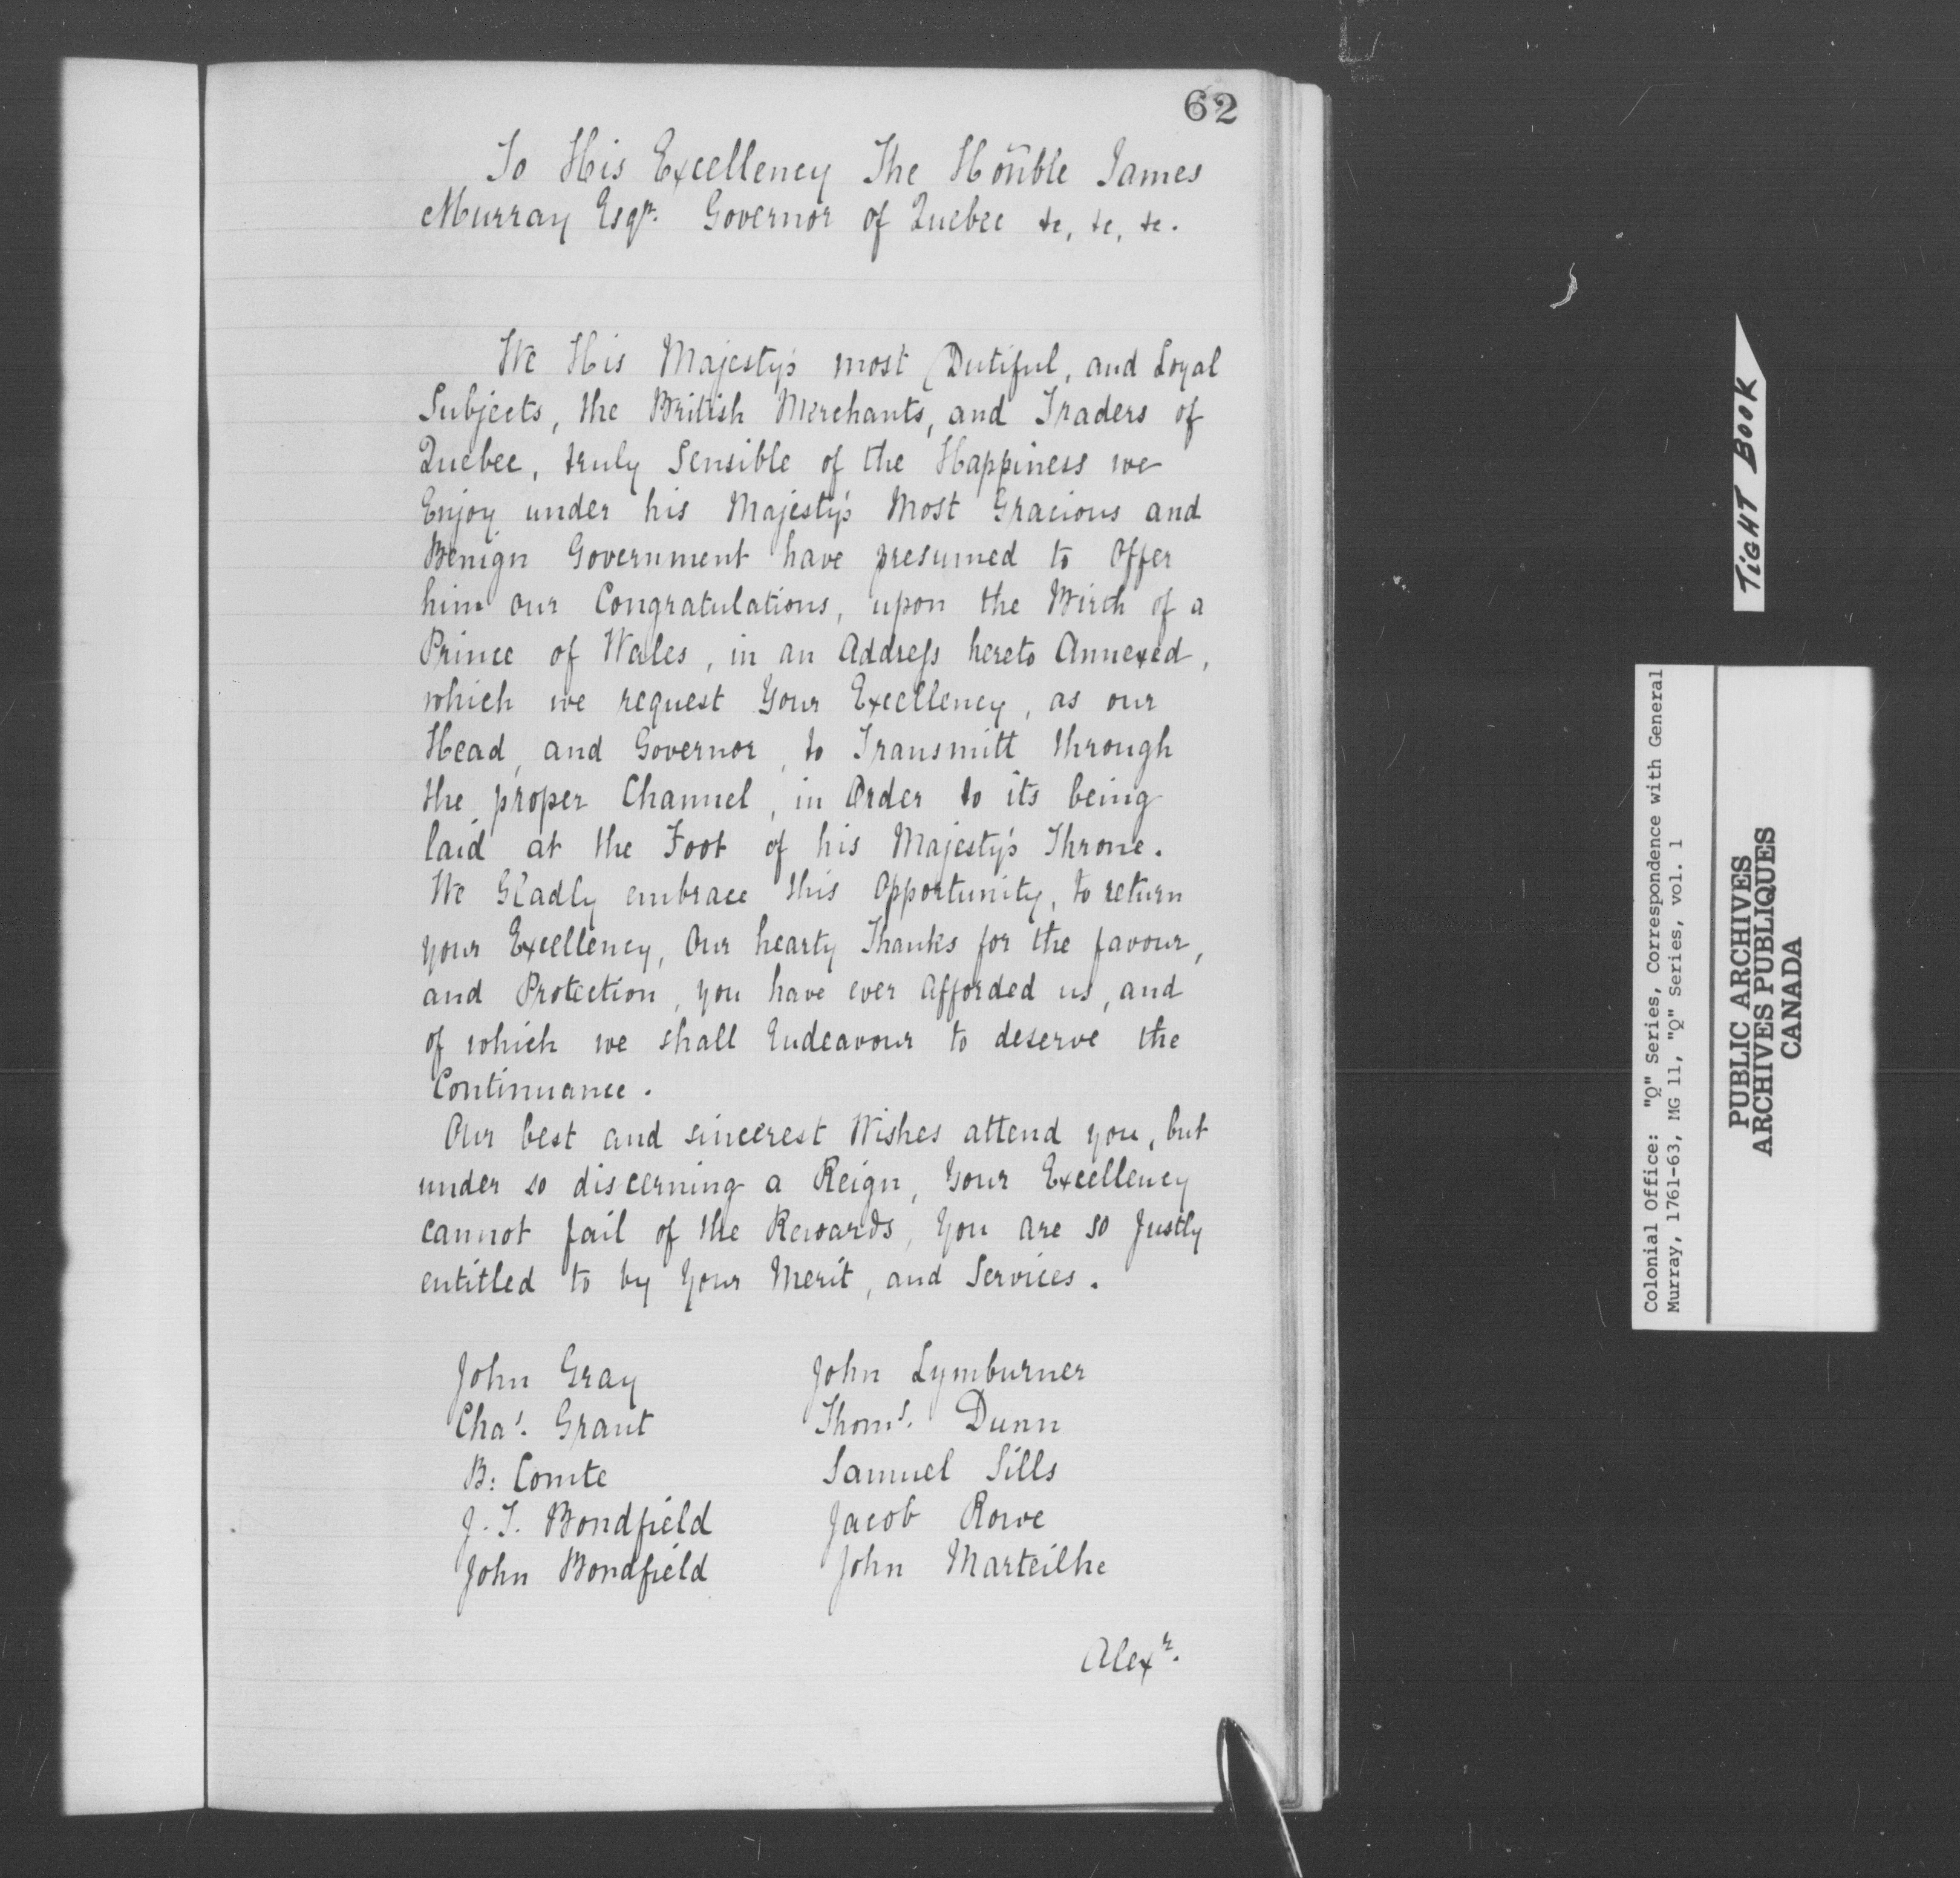 62
To His Excellency The Hoñble James
Murray Esqr. Governor of Quebec &c, &c, &c.
We His Majesty's most Dutiful, and Loyal
Subjects, the British Merchants, and Traders of
Quebec, truly Sensible of the Happiness we
Enjoy under his Majesty's Most Gracious and
Benign Government have presumed to Offer
him our Congratulations, upon the Birth of a
Prince of Wales, in an Addreſs hereto Annexed,
which we request Your Excellency, as our
Head, and Governor, to Transmitt through
the proper Channel, in Order to its being
laid at the Foot of his Majesty's Throne.
We Gladly embrace this Opportunity, to return
your Excellency, Our hearty Thanks for the favour,
and Protection, you have ever afforded us, and
of which we shall Endeavour to deserve the
Continuance.
Our best and sincerest Wishes attend you, but
under so discerning a Reign, Your Excellency
cannot fail of the Rewards, you are so justly
entitled to by Your Merit, and Services.
John Gray John Lymburner
Chas. Grant Thoms. Dunn
B: Comte Samuel Sills
J. T. Bondfield Jacob Rowe
John Bondfield John Marteilhe
Alexr.
TiGHT BOOK
Colonial Office: "Q" Series, Correspondence with General
Murray, 1761-63, MG 11, "Q" Series, vol. 1
PUBLIC ARCHIVES
ARCHIVES PUBLIQUES
CANADA